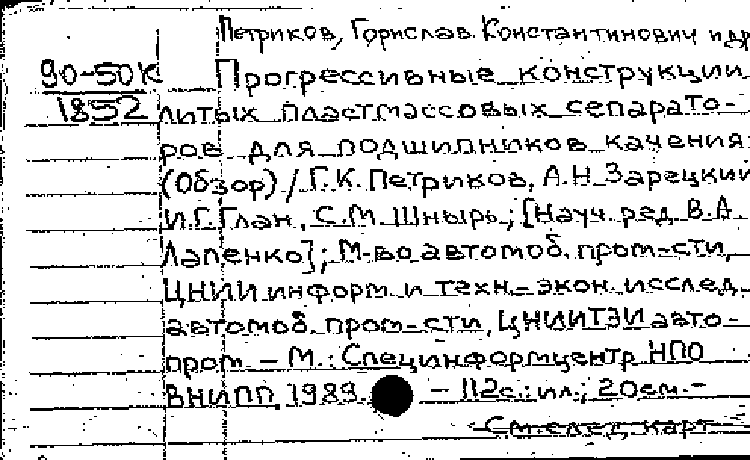 Петриков, Горислав Константинович и др
90-50К Прогрессивные конструкции
1852 литых пластмассовых сепарато-
ров для подшипников качения:
(Обзор) / Г.К. Петриков, А.Н. Зарецкий
И.Г. Глан, С.М. Шнырь; [Науч. ред. В.А.
Лапенко]; М-во автомоб. пром-сти,
ЦНИИ информ. и техн.-экон. исслед.
автомоб. пром-сти, ЦНИИТЭИавто-
пром. - М.: Специнформцентр НПО
ВНИПП, 1989. - 112с.: ил.; 20см.-
См. след. карт.